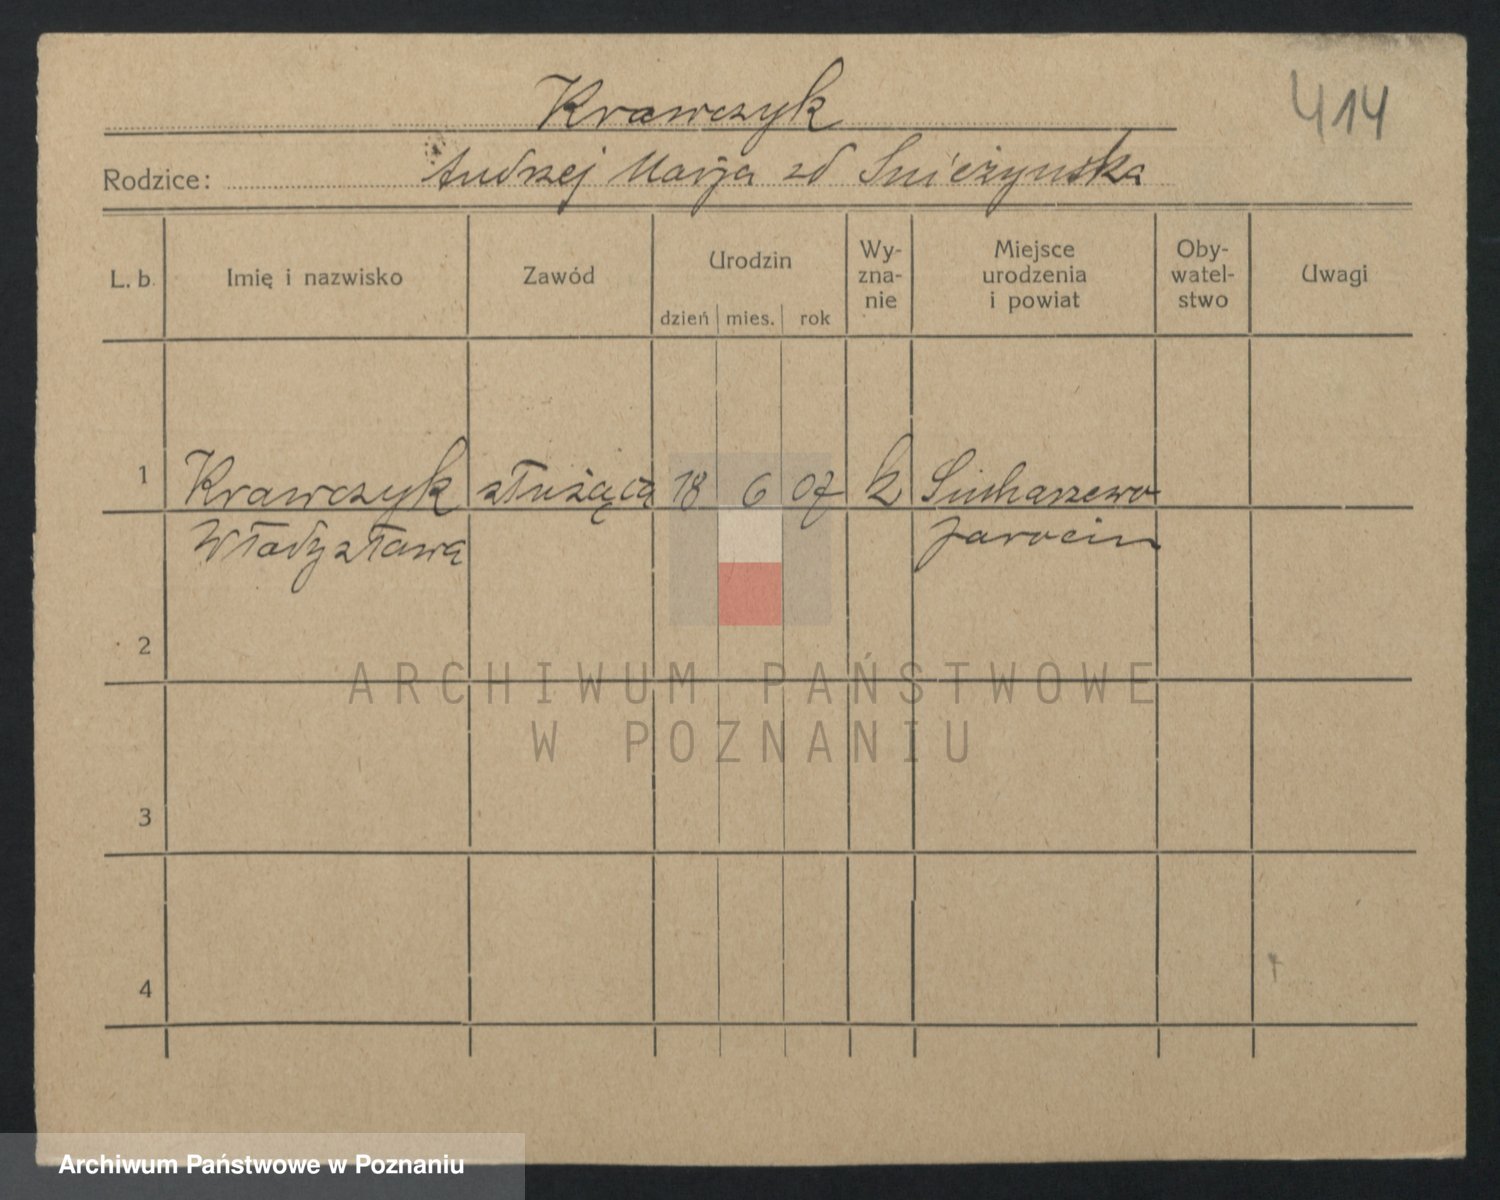 Krawczyk
414
Rodzice: Andrzej Marja zd Snieżynska
L. b. Imię i nazwisko Zawód Urodzin Wy- Miejsce Oby- Uwagi
zna- urodzenia watel-
dzień mies. rok nie i powiat stwo
1 Krawczyk służąca 18 6 07 k Sucharzewo
Władysława Jarocin
2
ARCHIWUM PAŃSTWOWE
W POZNANIU
3
4
Archiwum Państwowe w Poznaniu